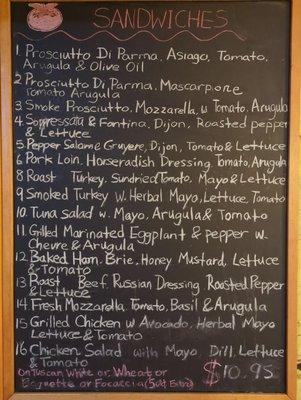 SANDWICHES
1. Prosciutto Di Parma, Asiago, Tomato,
Arugula & Olive Oil
2 Prosciutto Di Parma, Mascarpone
Tomato Arugula
3 Smoke Prosciutto, Mozzarella, w Tomato, Arugula
4 Soppressata & Fantina, Dijon, Roasted pepper
& Lettuce
5 Pepper Salami & Gruyere, Dijon, Tomato & Lettuce
6 Pork Loin, Horseradish Dressing, Tomato, Arugula
8 Roast Turkey, Sundried Tomato, Mayo & Lettuce
9 Smoked Turkey w. Herbal Mayo, Lettuce, Tomato
10. Tuna Salad w. Mayo, Arugula & Tomato
11. Grilled Marinated Eggplant & pepper w.
Chevre & Arugula
12 Baked Ham. Brie, Honey Mustard, Lettuce
& Tomato
13 Roast Beef, Russian Dressing, Roasted Pepper
& Lettuce
14. Fresh Mozzarella, Tomato, Basil & Arugula
15 Grilled Chicken w Avocado, Herbal Mayo
Lettuce & Tomato
16 Chicken Salad with Mayo, Dill, Lettuce
& Tomato
On Tuscan White or, Wheat or
Baguette or Focaccia (50¢ Extra) $10.95